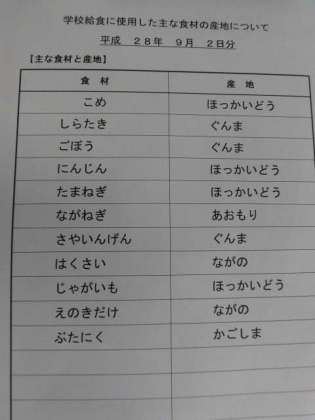 学校給食に使用した主な食材の産地について
平成 28年 9月 2日分
【主な食材と産地】
食 材 産 地
こめ ほっかいどう
しらたき ぐんま
ごぼう ぐんま
にんじん ほっかいどう
たまねぎ ほっかいどう
ながねぎ あおもり
さやいんげん ぐんま
はくさい ながの
じゃがいも ほっかいどう
えのきだけ ながの
ぶたにく かごしま